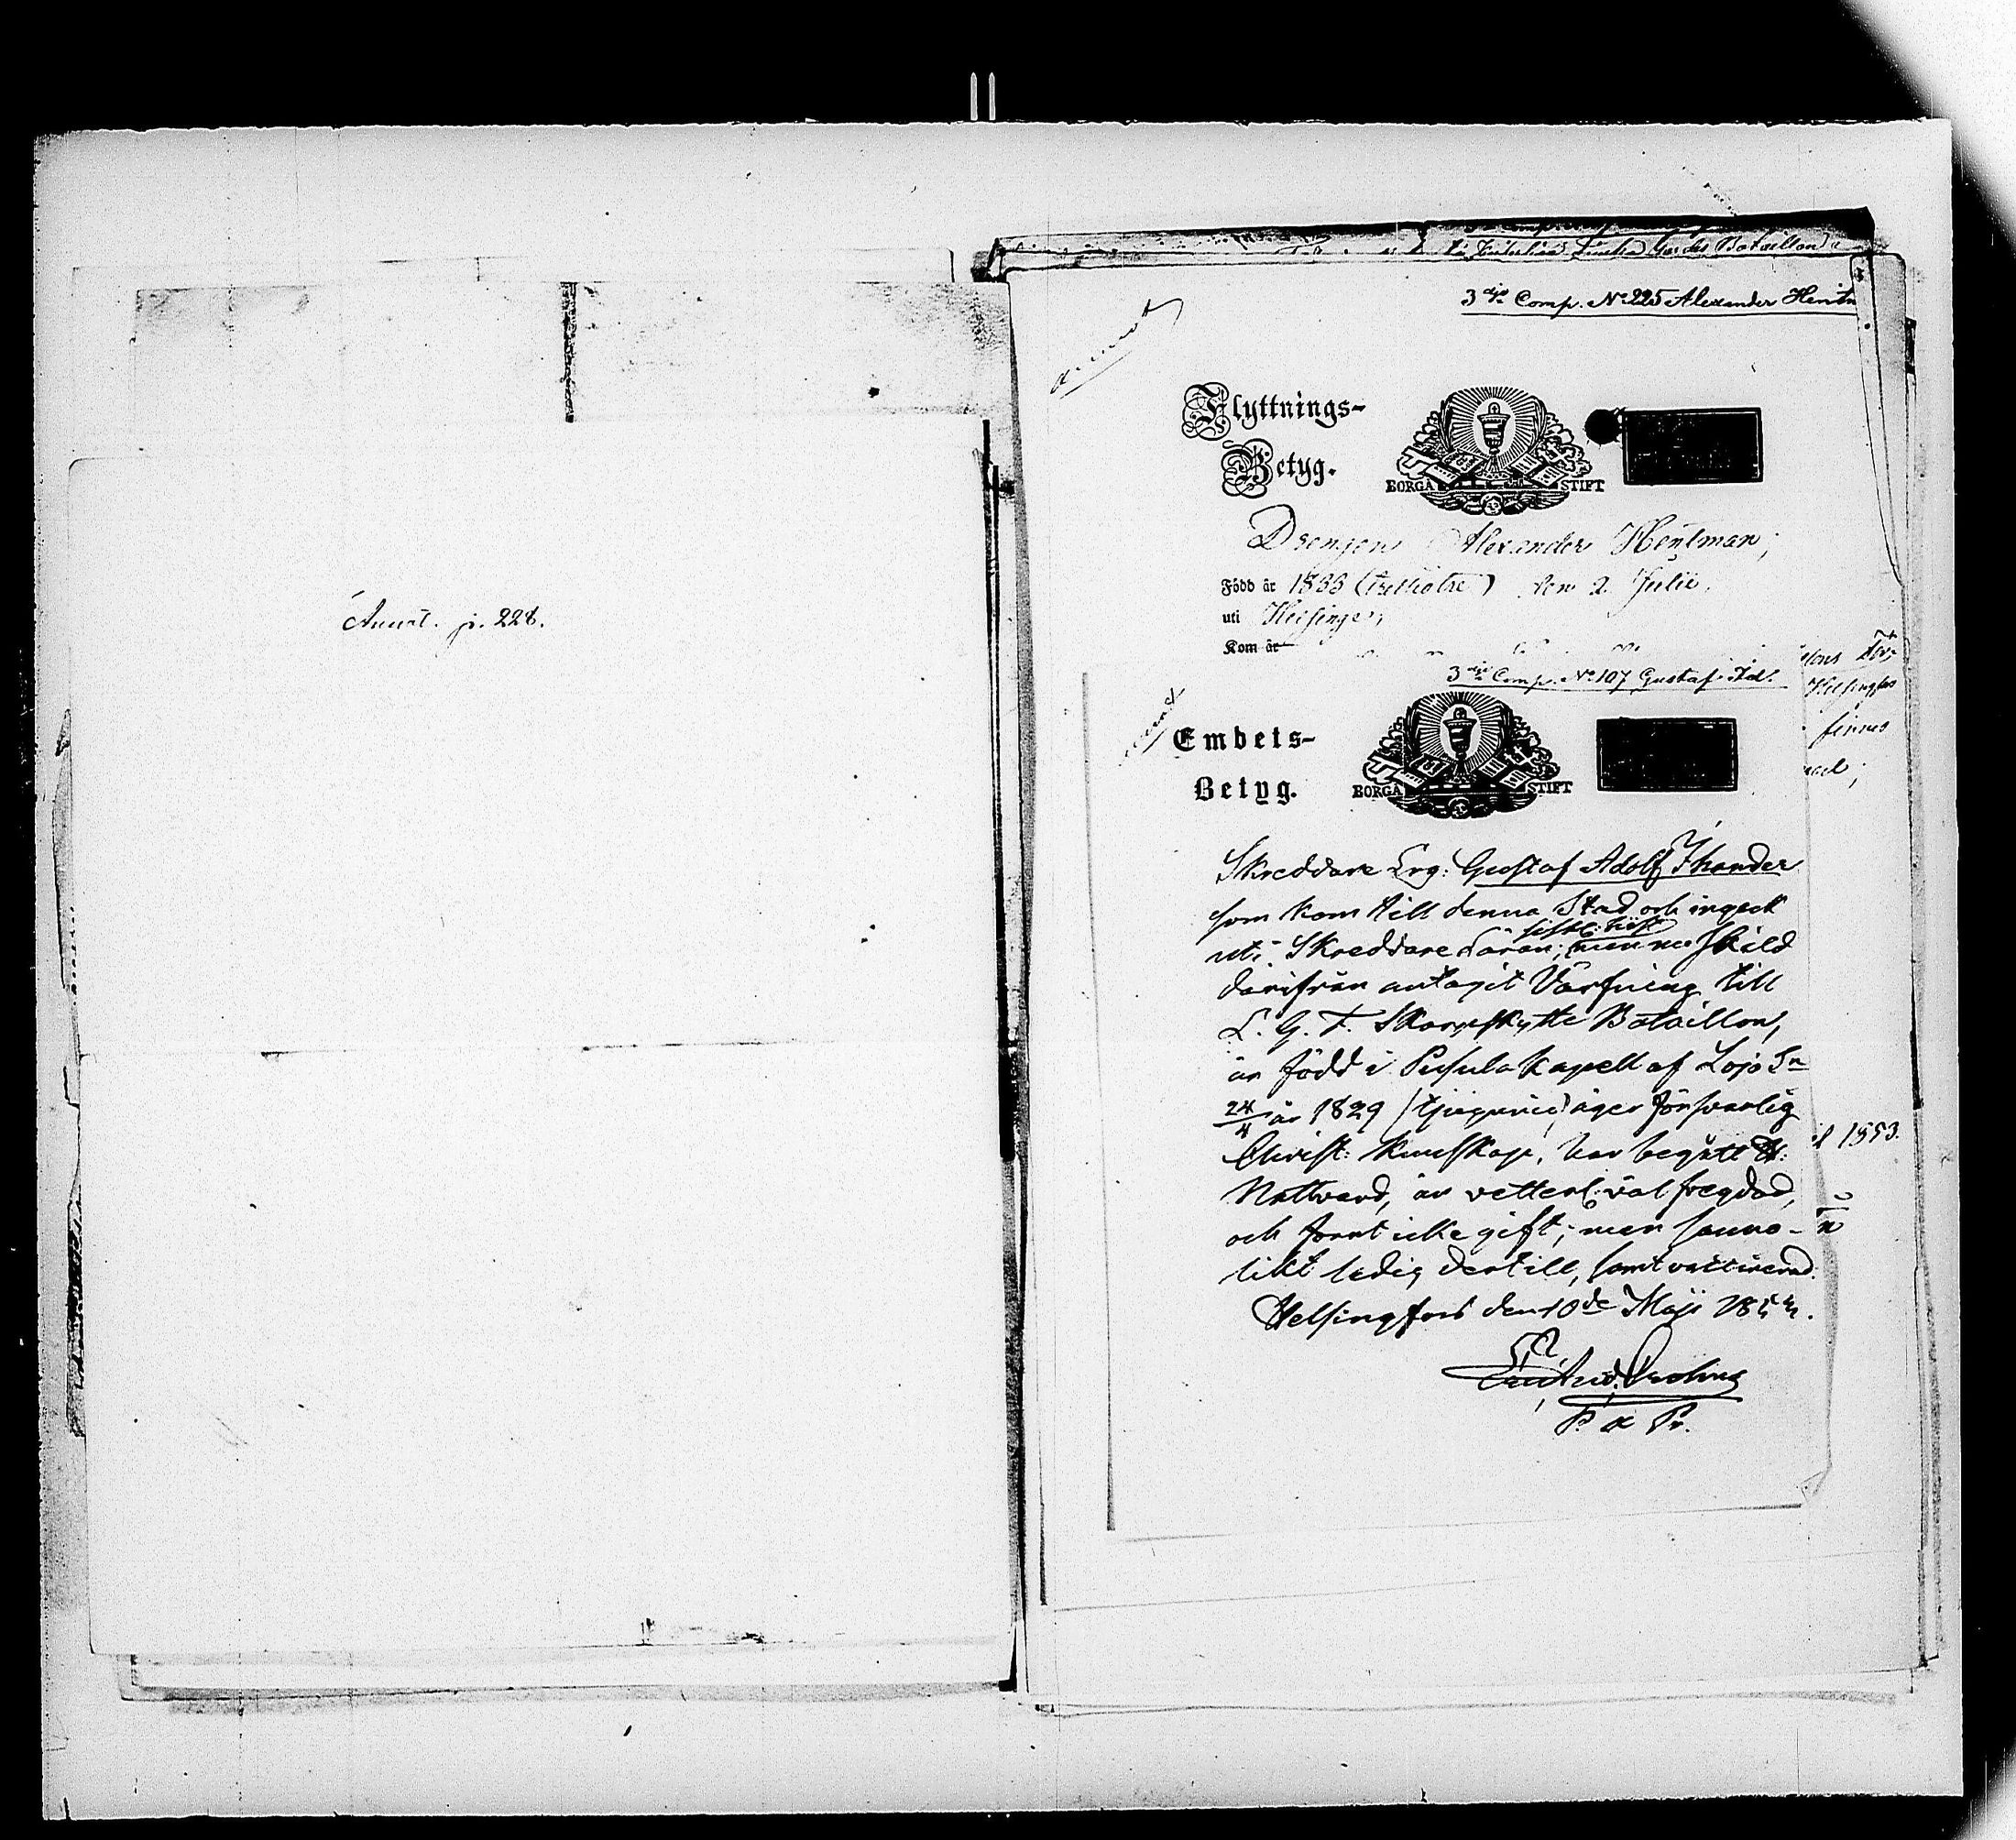 Annot. p. 228.
3dje Comp. No 225 Alexander Hentm
annot
Flyttnings-
Betyg.
BORGÅ STIFT
Drengen Alexander Hentman;
Född år 1833 (trettiotre) den 2 Julii,
uti Helsinge,
Kom år
3dje Comp. No 107 Gustaf Ad.
annot
Embets-
Betyg.
BORGÅ STIFT
Skreddare Lrg: Gustaf Adolf Ihander
som kom till denna Stad och ingeck
uti Skreddare Läran; men nu skild
därifrån antagit Värfning till
L. G. F. Skarpskytte Bataillon,
är född i Pusula Kapell af Lojo Sn
24/4 år 1829 (tjugunie) äger försvarlig
Christ: kunskap, har begått H:
Nattvard, är vetterl: väl fregdad,
och förut icke gift; men sanno-
likt ledig dertill, samt vaccinerad.
Helsingfors den 10de Maji 1853.
P. a Pr.
Helsingfors
finnes
1853.